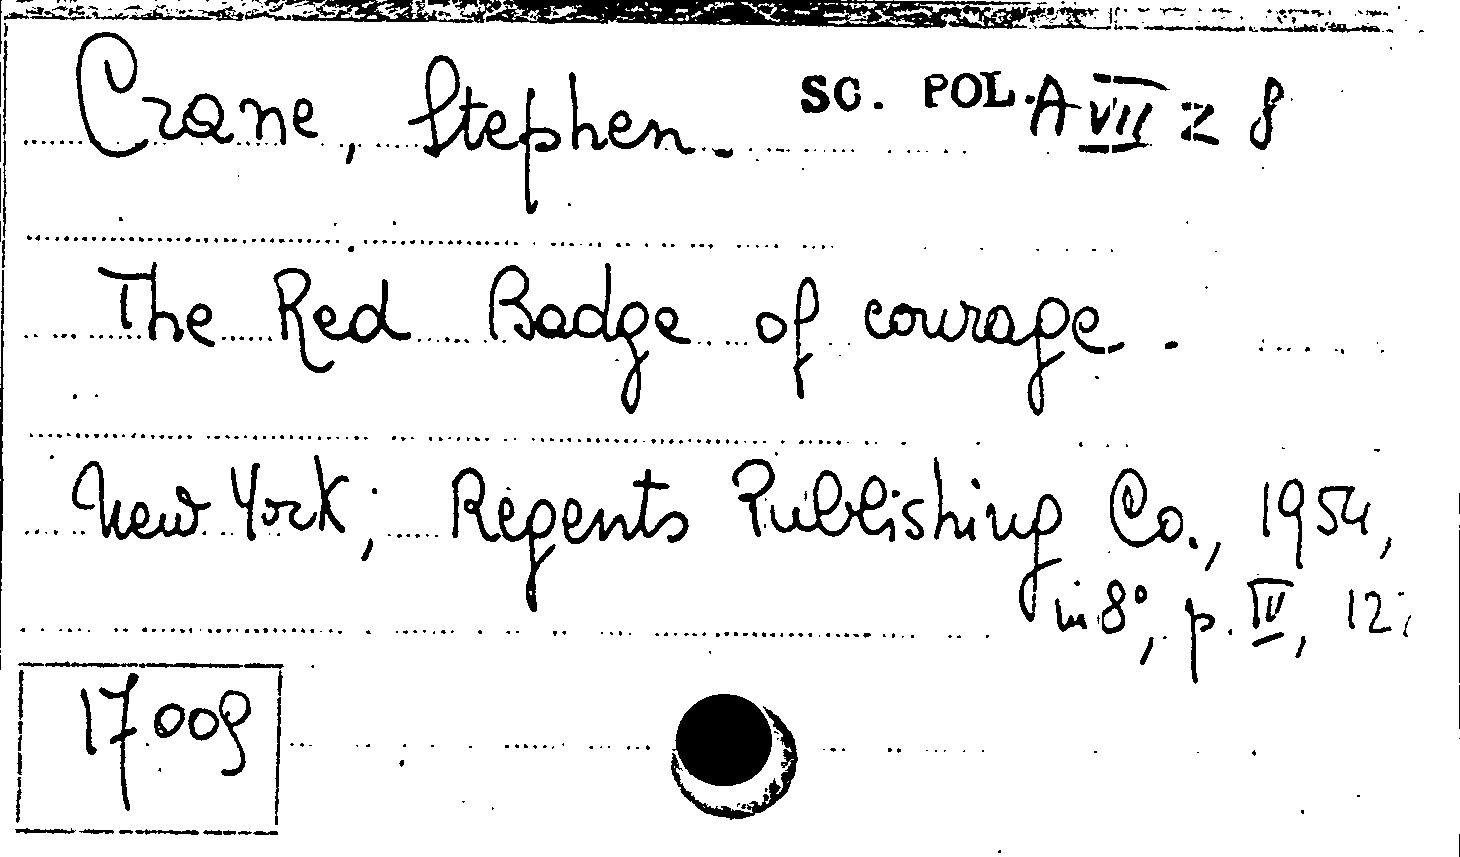 Crane, Stephen. SC. POL. A VII z 8
The Red Badge of courage.
New York, Regents Publishing Co., 1954,
in 8°, p. IV, 12
17009